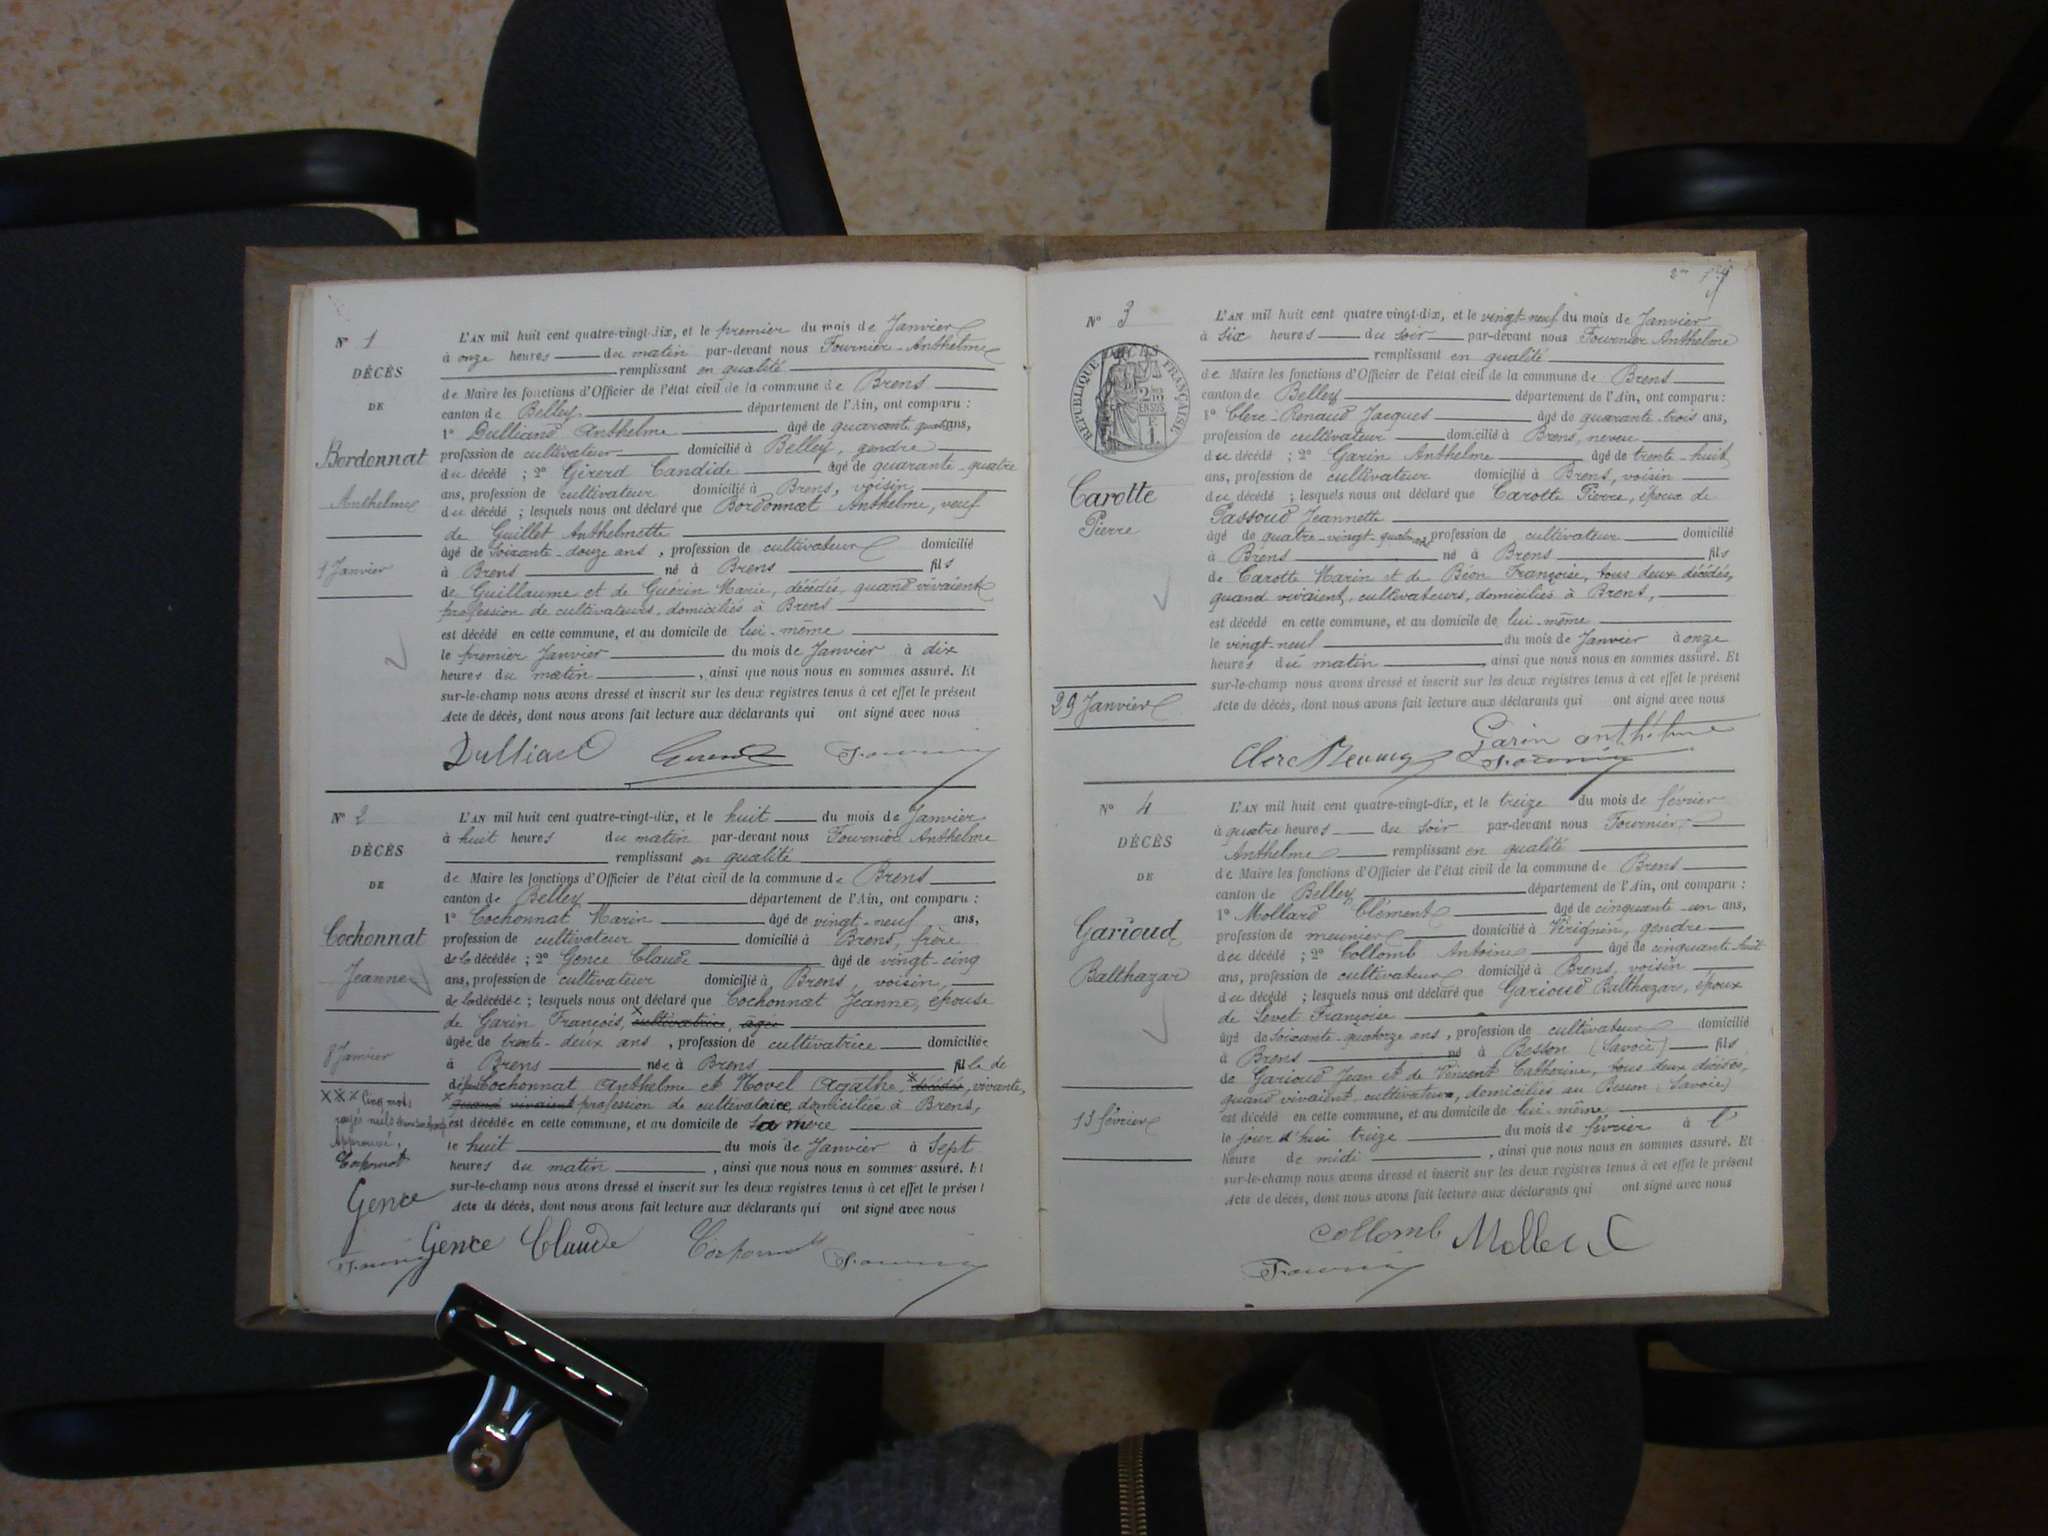 Nº 1
DÉCÈS
DE
Bordonnat
Anthelme
1 Janvier
L'AN mil huit cent quatre-vingt-dix, et le premier du mois de Janvier
à onze heures du matin par-devant nous Fournier Anthelme
remplissant en qualité
de Maire les fonctions d'Officier de l'état civil de la commune de Brens
canton de Belley département de l'Ain, ont comparu :
1º Dulliand Anthelme âgé de quarante quatre ans,
profession de cultivateur domicilié à Belley, gendre
du décédé ; 2º Girerd Candide âgé de quarante-quatre
ans, profession de cultivateur domicilié à Brens, voisin
du décédé ; lesquels nous ont déclaré que Bordonnat Anthelme, veuf
de Guillet Anthelmette
âgé de soixante-douze ans, profession de cultivateur domicilié
à Brens né à Brens fils
de Guillaume et de Guérin Marie, décédés, quand vivaient
profession de cultivateurs, domiciliés à Brens
est décédé en cette commune, et au domicile de lui-même
le premier Janvier du mois de Janvier à dix
heures du matin, ainsi que nous nous en sommes assuré. Et
sur-le-champ nous avons dressé et inscrit sur les deux registres tenus à cet effet le présent
Acte de décès, dont nous avons fait lecture aux déclarants qui ont signé avec nous
Dulliand Girerd Fournier
Nº 2
DÉCÈS
DE
Cochonnat
Jeanne
8 Janvier
XXX Cinq mots
rayés nuls
Approuvé.
Gence
L'AN mil huit cent quatre-vingt-dix, et le huit du mois de Janvier
à huit heures du matin par-devant nous Fournier Anthelme
remplissant en qualité
de Maire les fonctions d'Officier de l'état civil de la commune de Brens
canton de Belley département de l'Ain, ont comparu :
1º Cochonnat Marin âgé de vingt-neuf ans,
profession de cultivateur domicilié à Brens, frère
de la décédée ; 2º Gence Claude âgé de vingt-cinq
ans, profession de cultivateur domicilié à Brens, voisin,
de la décédée ; lesquels nous ont déclaré que Cochonnat Jeanne, épouse
de Garin François, cultivatrice, âgée
âgée de trente-deux ans, profession de cultivatrice domiciliée
à Brens née à Brens fille de
Cochonnat Anthelme et Novel Agathe, décédés, vivante,
quand vivaient profession de cultivatrice, domiciliée à Brens,
est décédée en cette commune, et au domicile de sa mère
le huit du mois de Janvier à sept
heures du matin, ainsi que nous nous en sommes assuré. Et
sur-le-champ nous avons dressé et inscrit sur les deux registres tenus à cet effet le présent
Acte de décès, dont nous avons fait lecture aux déclarants qui ont signé avec nous
Fournier Gence Claude Cochonnat Fournier
Nº 3
RÉPUBLIQUE FRANÇAISE
Carotte
Pierre
29 Janvier
L'AN mil huit cent quatre vingt-dix, et le vingt-neuf du mois de Janvier
à six heures du soir par-devant nous Fournier Anthelme
remplissant en qualité
de Maire les fonctions d'Officier de l'état civil de la commune de Brens
canton de Belley département de l'Ain, ont comparu :
1º Clerc-Renaud Jacques âgé de quarante-trois ans,
profession de cultivateur domicilié à Brens, neveu
du décédé ; 2º Garin Anthelme âgé de trente-huit
ans, profession de cultivateur domicilié à Brens, voisin
du décédé ; lesquels nous ont déclaré que Carotte Pierre, époux de
Passoud Jeannette
âgé de quatre-vingt-quatre profession de cultivateur domicilié
à Brens né à Brens fils
de Carotte Marin et de Béon Françoise, tous deux décédés,
quand vivaient, cultivateurs, domiciliés à Brens,
est décédé en cette commune, et au domicile de lui-même
le vingt-neuf du mois de Janvier à onze
heures du matin, ainsi que nous nous en sommes assuré. Et
sur-le-champ nous avons dressé et inscrit sur les deux registres tenus à cet effet le présent
Acte de décès, dont nous avons fait lecture aux déclarants qui ont signé avec nous
Clerc Renaud Garin anthelme
Fournier
Nº 4
DÉCÈS
DE
Garioud
Balthazar
13 février
L'AN mil huit cent quatre-vingt-dix, et le treize du mois de février
à quatre heures du soir par-devant nous Fournier
Anthelme remplissant en qualité
de Maire les fonctions d'Officier de l'état civil de la commune de Brens
canton de Belley département de l'Ain, ont comparu :
1º Mollard Clément âgé de cinquante-un ans,
profession de meunier domicilié à Virignin, gendre
du décédé ; 2º Collomb Antoine âgé de cinquante-huit
ans, profession de cultivateur domicilié à Brens, voisin
du décédé ; lesquels nous ont déclaré que Garioud Balthazar, époux
de Levet Françoise
âgé de soixante-quatorze ans, profession de cultivateur domicilié
à Brens né à Besson (Savoie) fils
de Garioud Jean et de Vincent Catherine, tous deux décédés,
quand vivaient cultivateurs, domiciliés au Besson (Savoie)
est décédé en cette commune, et au domicile de lui-même
le jour d'hui treize du mois de février à l'
heure de midi, ainsi que nous nous en sommes assuré. Et
sur-le-champ nous avons dressé et inscrit sur les deux registres tenus à cet effet le présent
Acte de décès, dont nous avons fait lecture aux déclarants qui ont signé avec nous
Collomb Mollard
Fournier